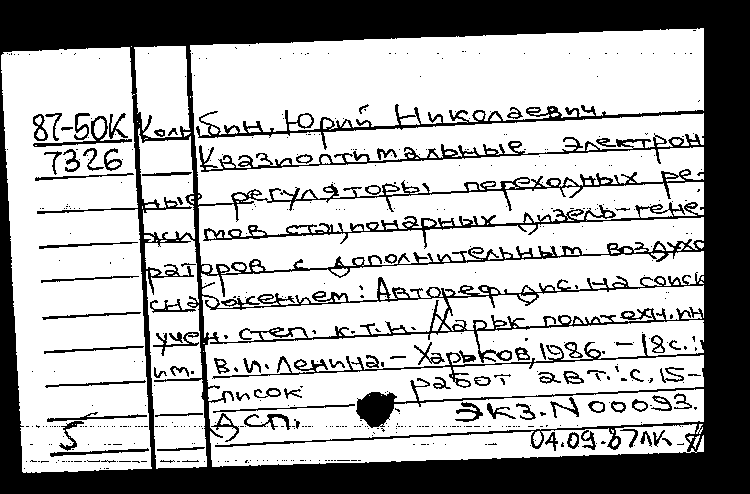 87-50К Колыбин, Юрий Николаевич.
7326 Квазиоптимальные электрон
ные регуляторы переходных ре-
жимов стационарных дизель-гене-
раторов с дополнительным воздухо
снабжением: Автореф. дис. на соиск
учен. степ. к.т.н. /Харьк. политехн. ин
им. В.И. Ленина. - Харьков, 1986. - 18с.:
Список работ авт.: с. 15-
ДСП. экз. N 00093.
5
04.09.87ЛК